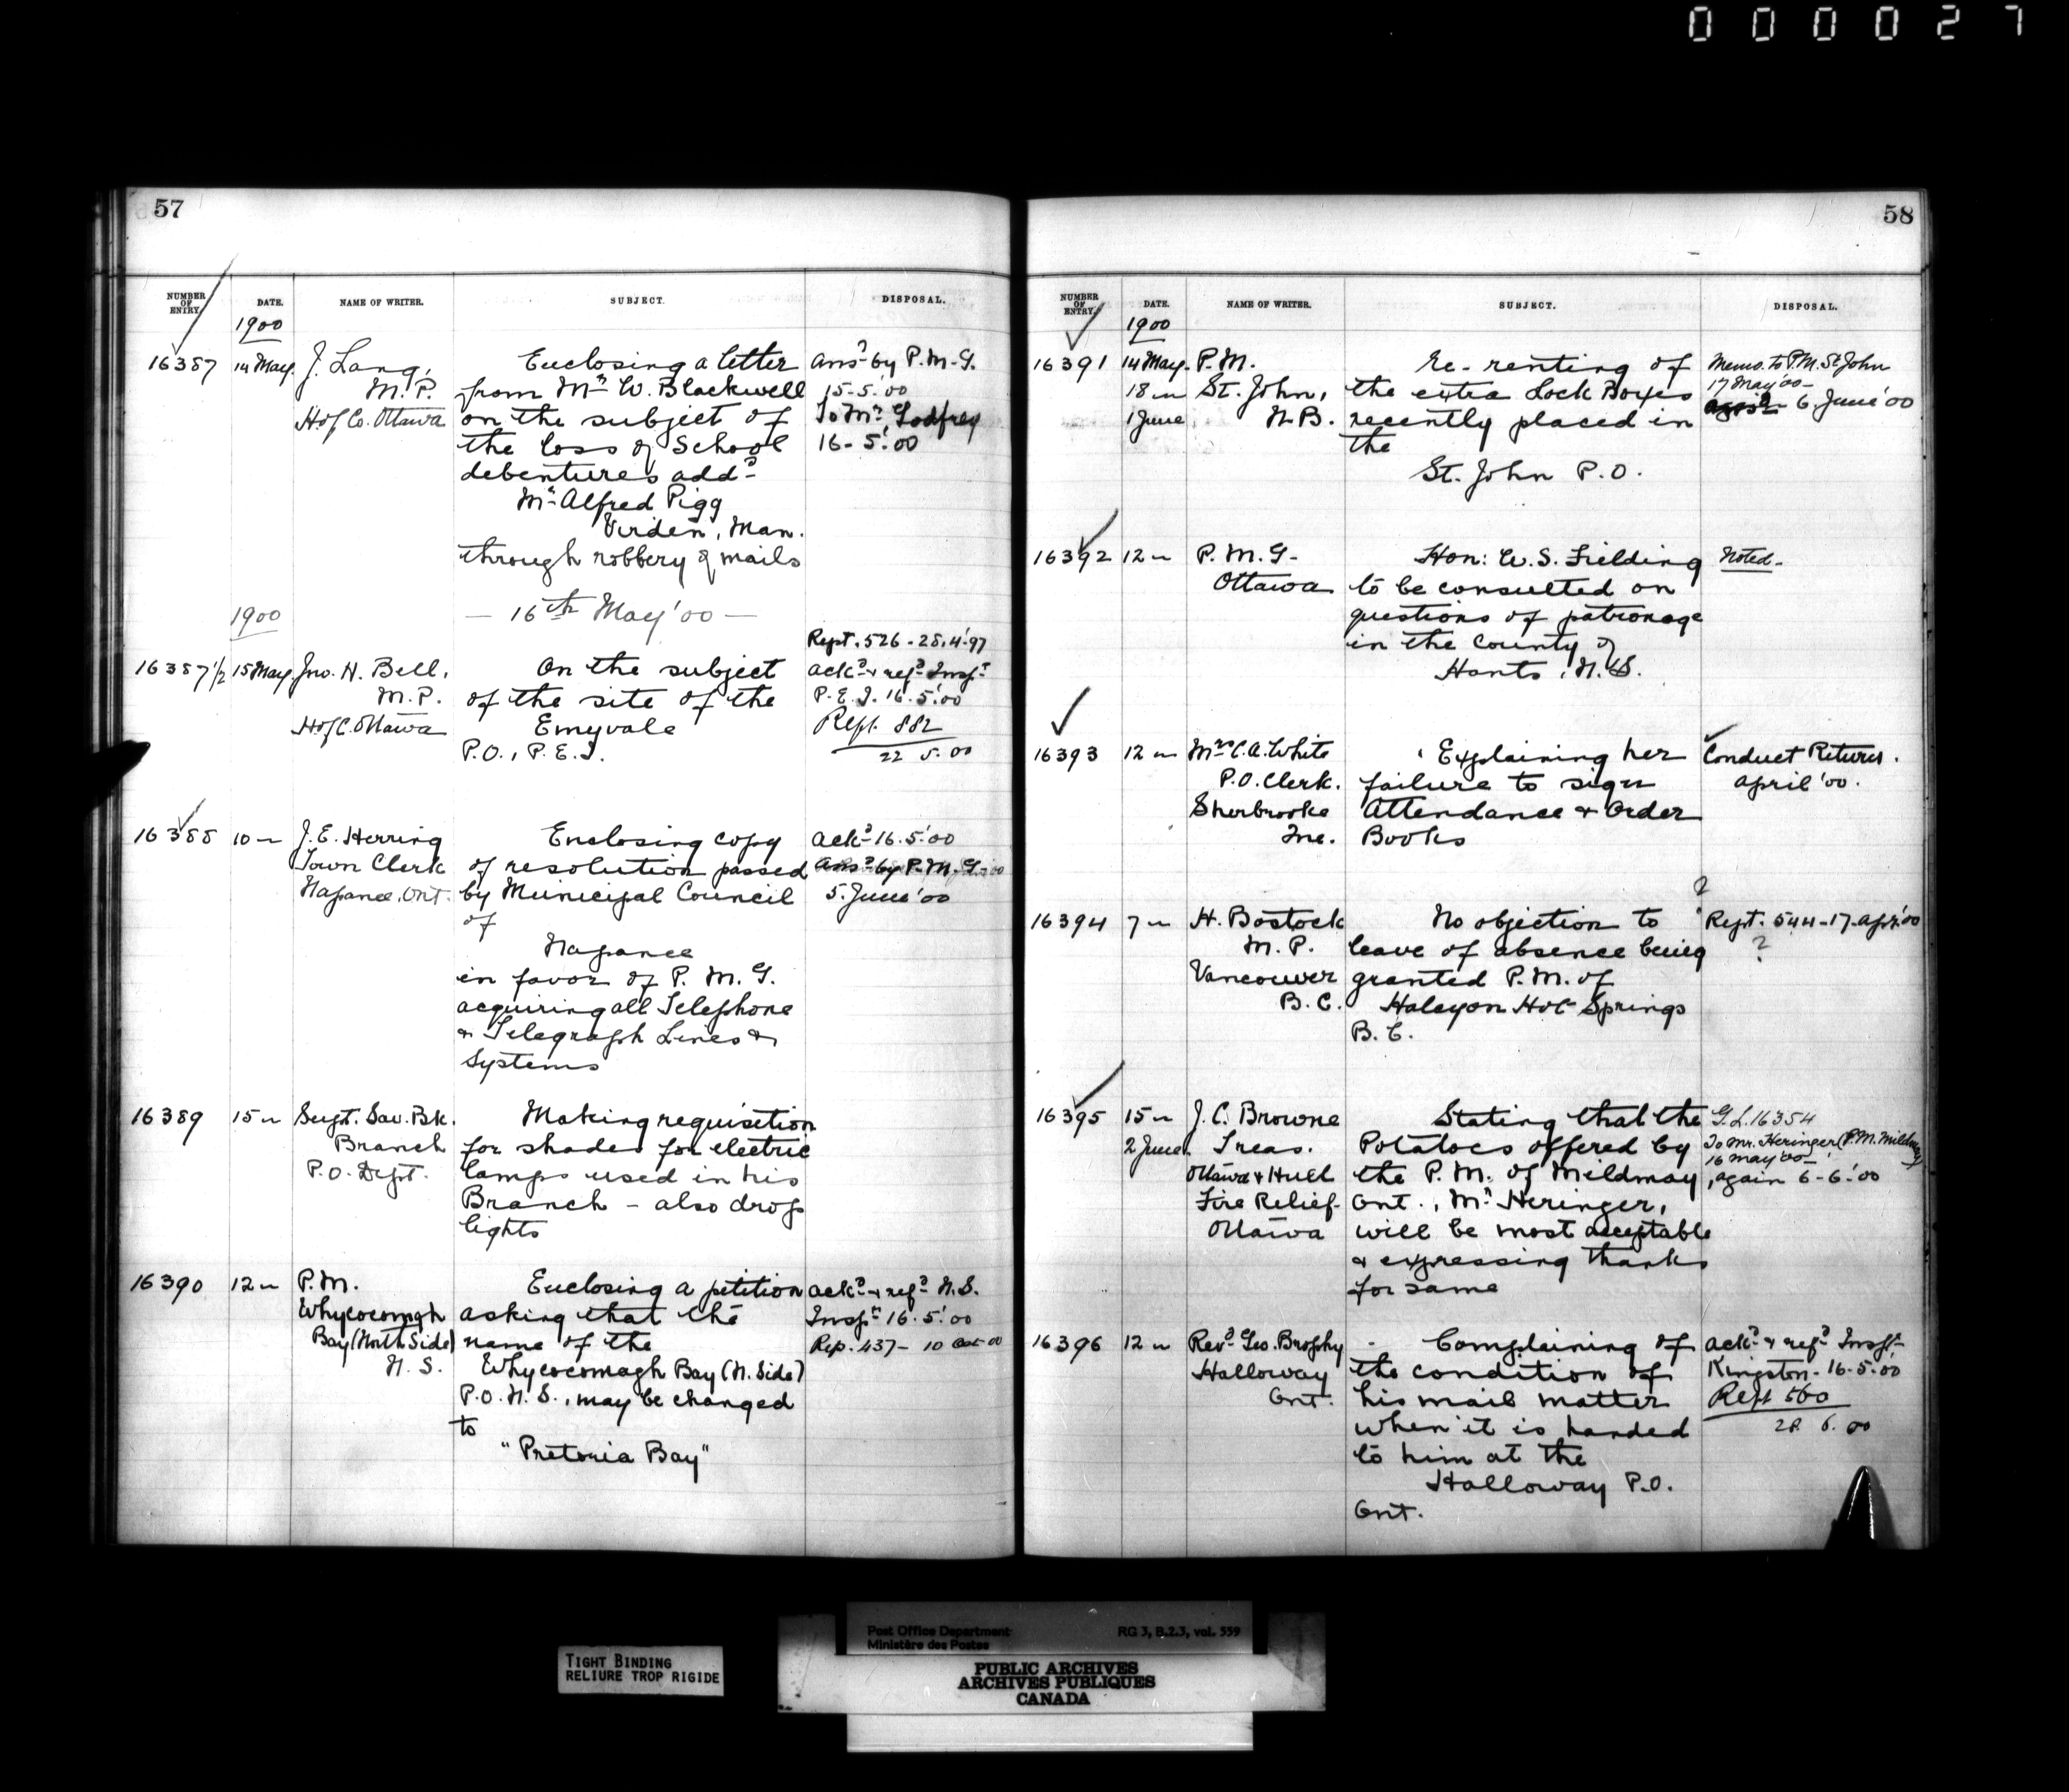 000027
57
NUMBER OF ENTRY.
DATE.
NAME OF WRITER.
SUBJECT.
DISPOSAL.
1900
16387
14 May.
J. Lang,
M. P.
H of Co. Ottawa
Enclosing a letter
from Mr W. Blackwell
on the subject of
the loss of School
debentures addd
Mr Alfred Pigg
Virden, Man.
through robbery of mails
Ansd by P. M. G.
15-5.'00
To Mr. Godfrey
16-5.'00
1900
— 16th May '00 —
16387 1/2
15 May.
Jno. H. Bell.
M. P.
H of C. Ottawa
On the subject
of the site of the
Emyvale
P.O., P.E.I.
Rept. 526-28.4.'97
Ackd & refd Inspr
P.E.I. 16.5.'00
Rept. 882
22 5.00
16388
10 "
J. E. Herring
Town Clerk
Napanee, Ont.
Enclosing copy
of resolution passed
by Municipal Council
of
Napanee
in favor of P. M. G.
acquiring all Telephone
& Telegraph Lines &
Systems
Ackd 16.5.'00
Ansd by P. M. G.
5. June '00
16389
15 "
Supt. Sav. Bk.
Branch
P.O. Dept.
Making requisition
for shades for electric
lamps used in his
Branch - also drop
lights
16390
12 "
P. M.
Whycocomagh
Bay (North Side)
N. S.
Enclosing a petition
asking that the
name of the
Whycocomagh Bay (N. Side)
P.O. N. S., may be changed
to
"Pretoria Bay"
Ackd & refd N. S.
Inspr 16.5.'00
Rep. 437- 10 Oct 00
58
NUMBER OF ENTRY.
DATE.
NAME OF WRITER.
SUBJECT.
DISPOSAL.
1900
16391
14 May.
18 "
1 June
P. M.
St. John,
N. B.
Re- renting of
the extra Lock Boxes
recently placed in
the
St. John P.O.
Memo. to P.M. St. John
17 May '00-
6. June '00
16392
12 "
P. M. G.
Ottawa
Hon: W. S. Fielding
to be consulted on
questions of patronage
in the County of
Hants, N. S.
Noted.
16393
12 "
Mrs C. A. White
P.O. Clerk.
Sherbrooke
Que.
Explaining her
failure to sign
Attendance & Order
Books
Conduct Returns.
April '00.
16394
7 "
H. Bostock
M. P.
Vancouver
B. C.
No objection to
leave of absence being
granted P.M. of
Halcyon Hot Springs
B. C.
?
Rept. 544-17-Apr.'00
?
16395
15 "
2 June.
J. C. Browne
Treas.
Ottawa & Hull
Fire Relief-
Ottawa
Stating that the
Potatoes offered by
the P. M. of Mildmay
Ont., Mr Heringer,
will be most acceptable
& expressing thanks
for same
G. L. 16354
To Mr. Heringer (P.M. Mildmay)
16 May '00-
, again 6-6-'00
16396
12 "
Revd Geo. Brophy
Halloway
Ont.
Complaining of
the condition of
his mail matter
when it is handed
to him at the
Halloway P.O.
Ont.
Ackd & refd Inspr
Kingston-16-5.'00
Rept 560
28. 6. 00
Post Office Department
Ministère des Postes
RG 3, B.2.3, vol. 559
PUBLIC ARCHIVES
ARCHIVES PUBLIQUES
CANADA
TIGHT BINDING
RELIURE TROP RIGIDE